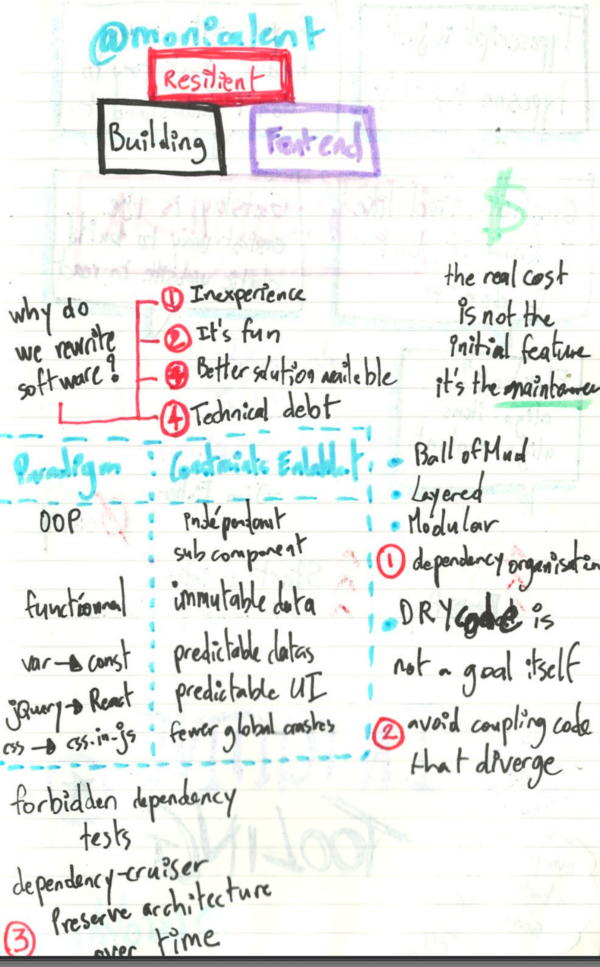 @monicalent
Resilient
Building
Frontend
$
the real cost
is not the
initial feature
it's the maintenan
why do
we rewrite
software?
1 Inexperience
2 It's fun
3 Better solution available
4 Technical debt
Paradigm
Constraints Enabled
OOP
indépendant
sub component
functionnal
immutable data
var → const
predictable datas
jQuery → React
predictable UI
css → css.in.js
fewer global crashes
• Ball of Mud
• Layered
• Modular
1 dependency organisation
• DRY code is
not a goal itself
2 avoid coupling code
that diverge
forbidden dependency
tests
dependency-cruiser
3 Preserve architecture
over time